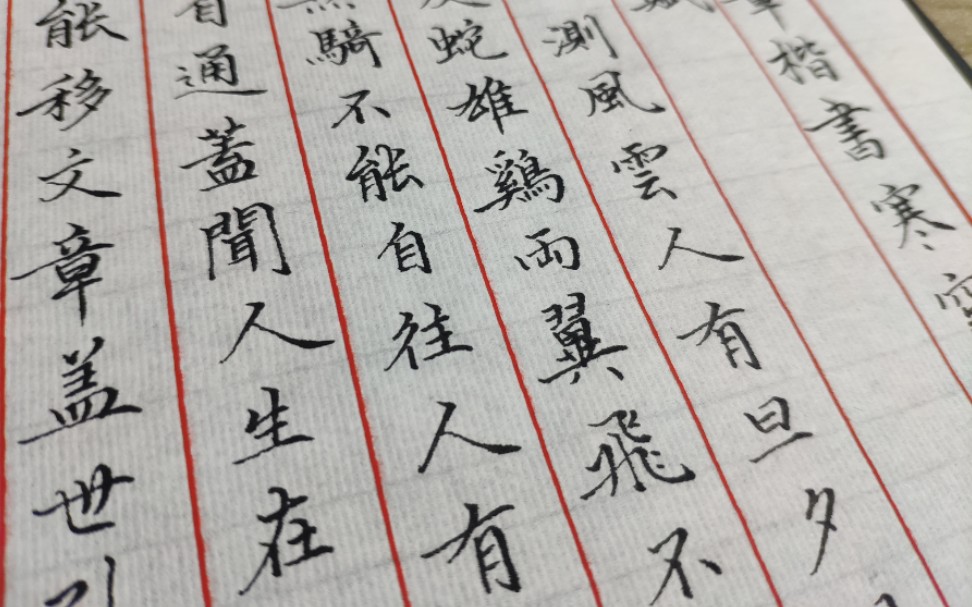 楷書寒
測風雲人有旦夕
蛇雄鷄兩翼飛不
騎不能自往人有
通蓋聞人生在
能移文章盖世